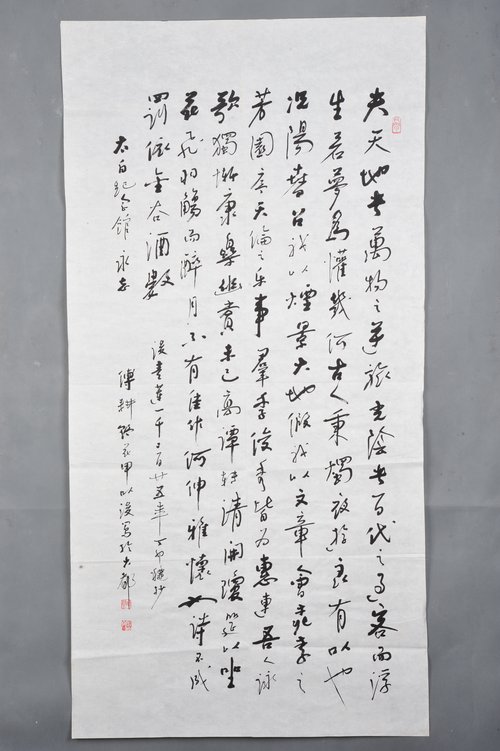 夫天地者萬物之逆旅光陰者百代之過客而浮
生若夢為懽幾何古人秉燭夜遊良有以也
況陽春召我以煙景大地假我以文章會桃李之
芳園序天倫之乐事羣季俊秀皆為惠連吾人詠
歌獨慚康樂幽賞未已高譚轉清開瓊筵以坐
花飛羽觴而醉月不有佳作何伸雅懷如詩不成
罰依金谷酒數
太白紀念館永存
一千二百廿五年丁卯
傅耕甲以後寫於大都